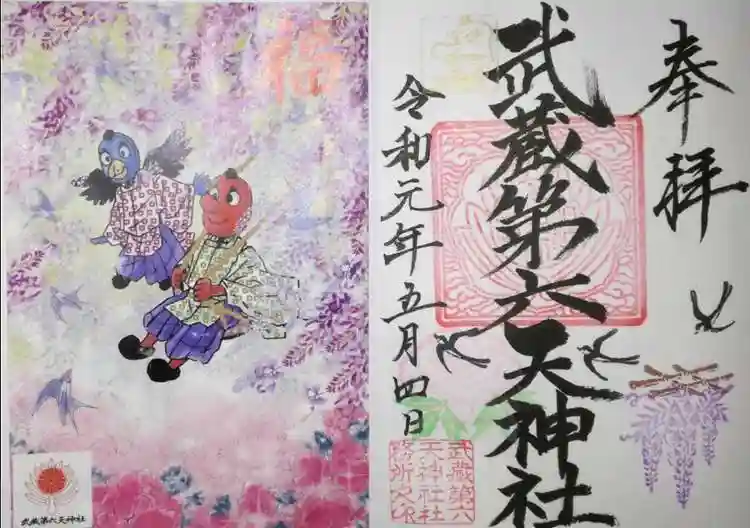 福
武蔵第六天神社
奉拝
武蔵第六天神社
令和元年五月四日
武蔵第六
天神社社
務所之印